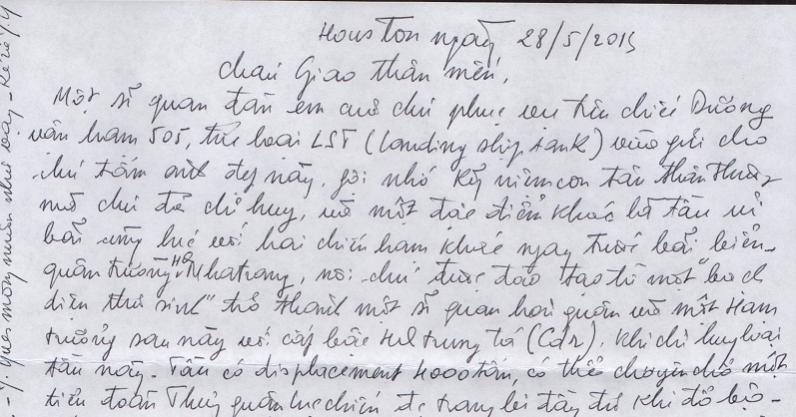 Houston ngày 28/5/2015
cháu Giao thân mến,
Một sĩ quan đàn em của chú phục vụ trên chiếc Dương
vận hạm 505, thứ loại LST (landing ship tank) vừa gửi cho
chú tấm ảnh đẹp này, gợi nhớ kỷ niệm con tàu thân thương
mà chú đã chỉ huy, và một đặc điểm khác là tàu ủi
bãi cùng lúc với hai chiến hạm khác ngay trước bãi biển
quân trường HQ Nhatrang, nơi chú được đào tạo từ một "bạch
diện thư sinh" trở thành một sĩ quan hải quân và một Hạm
trưởng sau này với cấp bậc HQ trung tá (Cdr), khi chỉ huy loại
tàu này. Tàu có displacement 4000 tấn, có thể chuyên chở một
tiểu đoàn Thuỷ quân lục chiến được trang bị đầy đủ khi đổ bộ-
muốn như vậy -